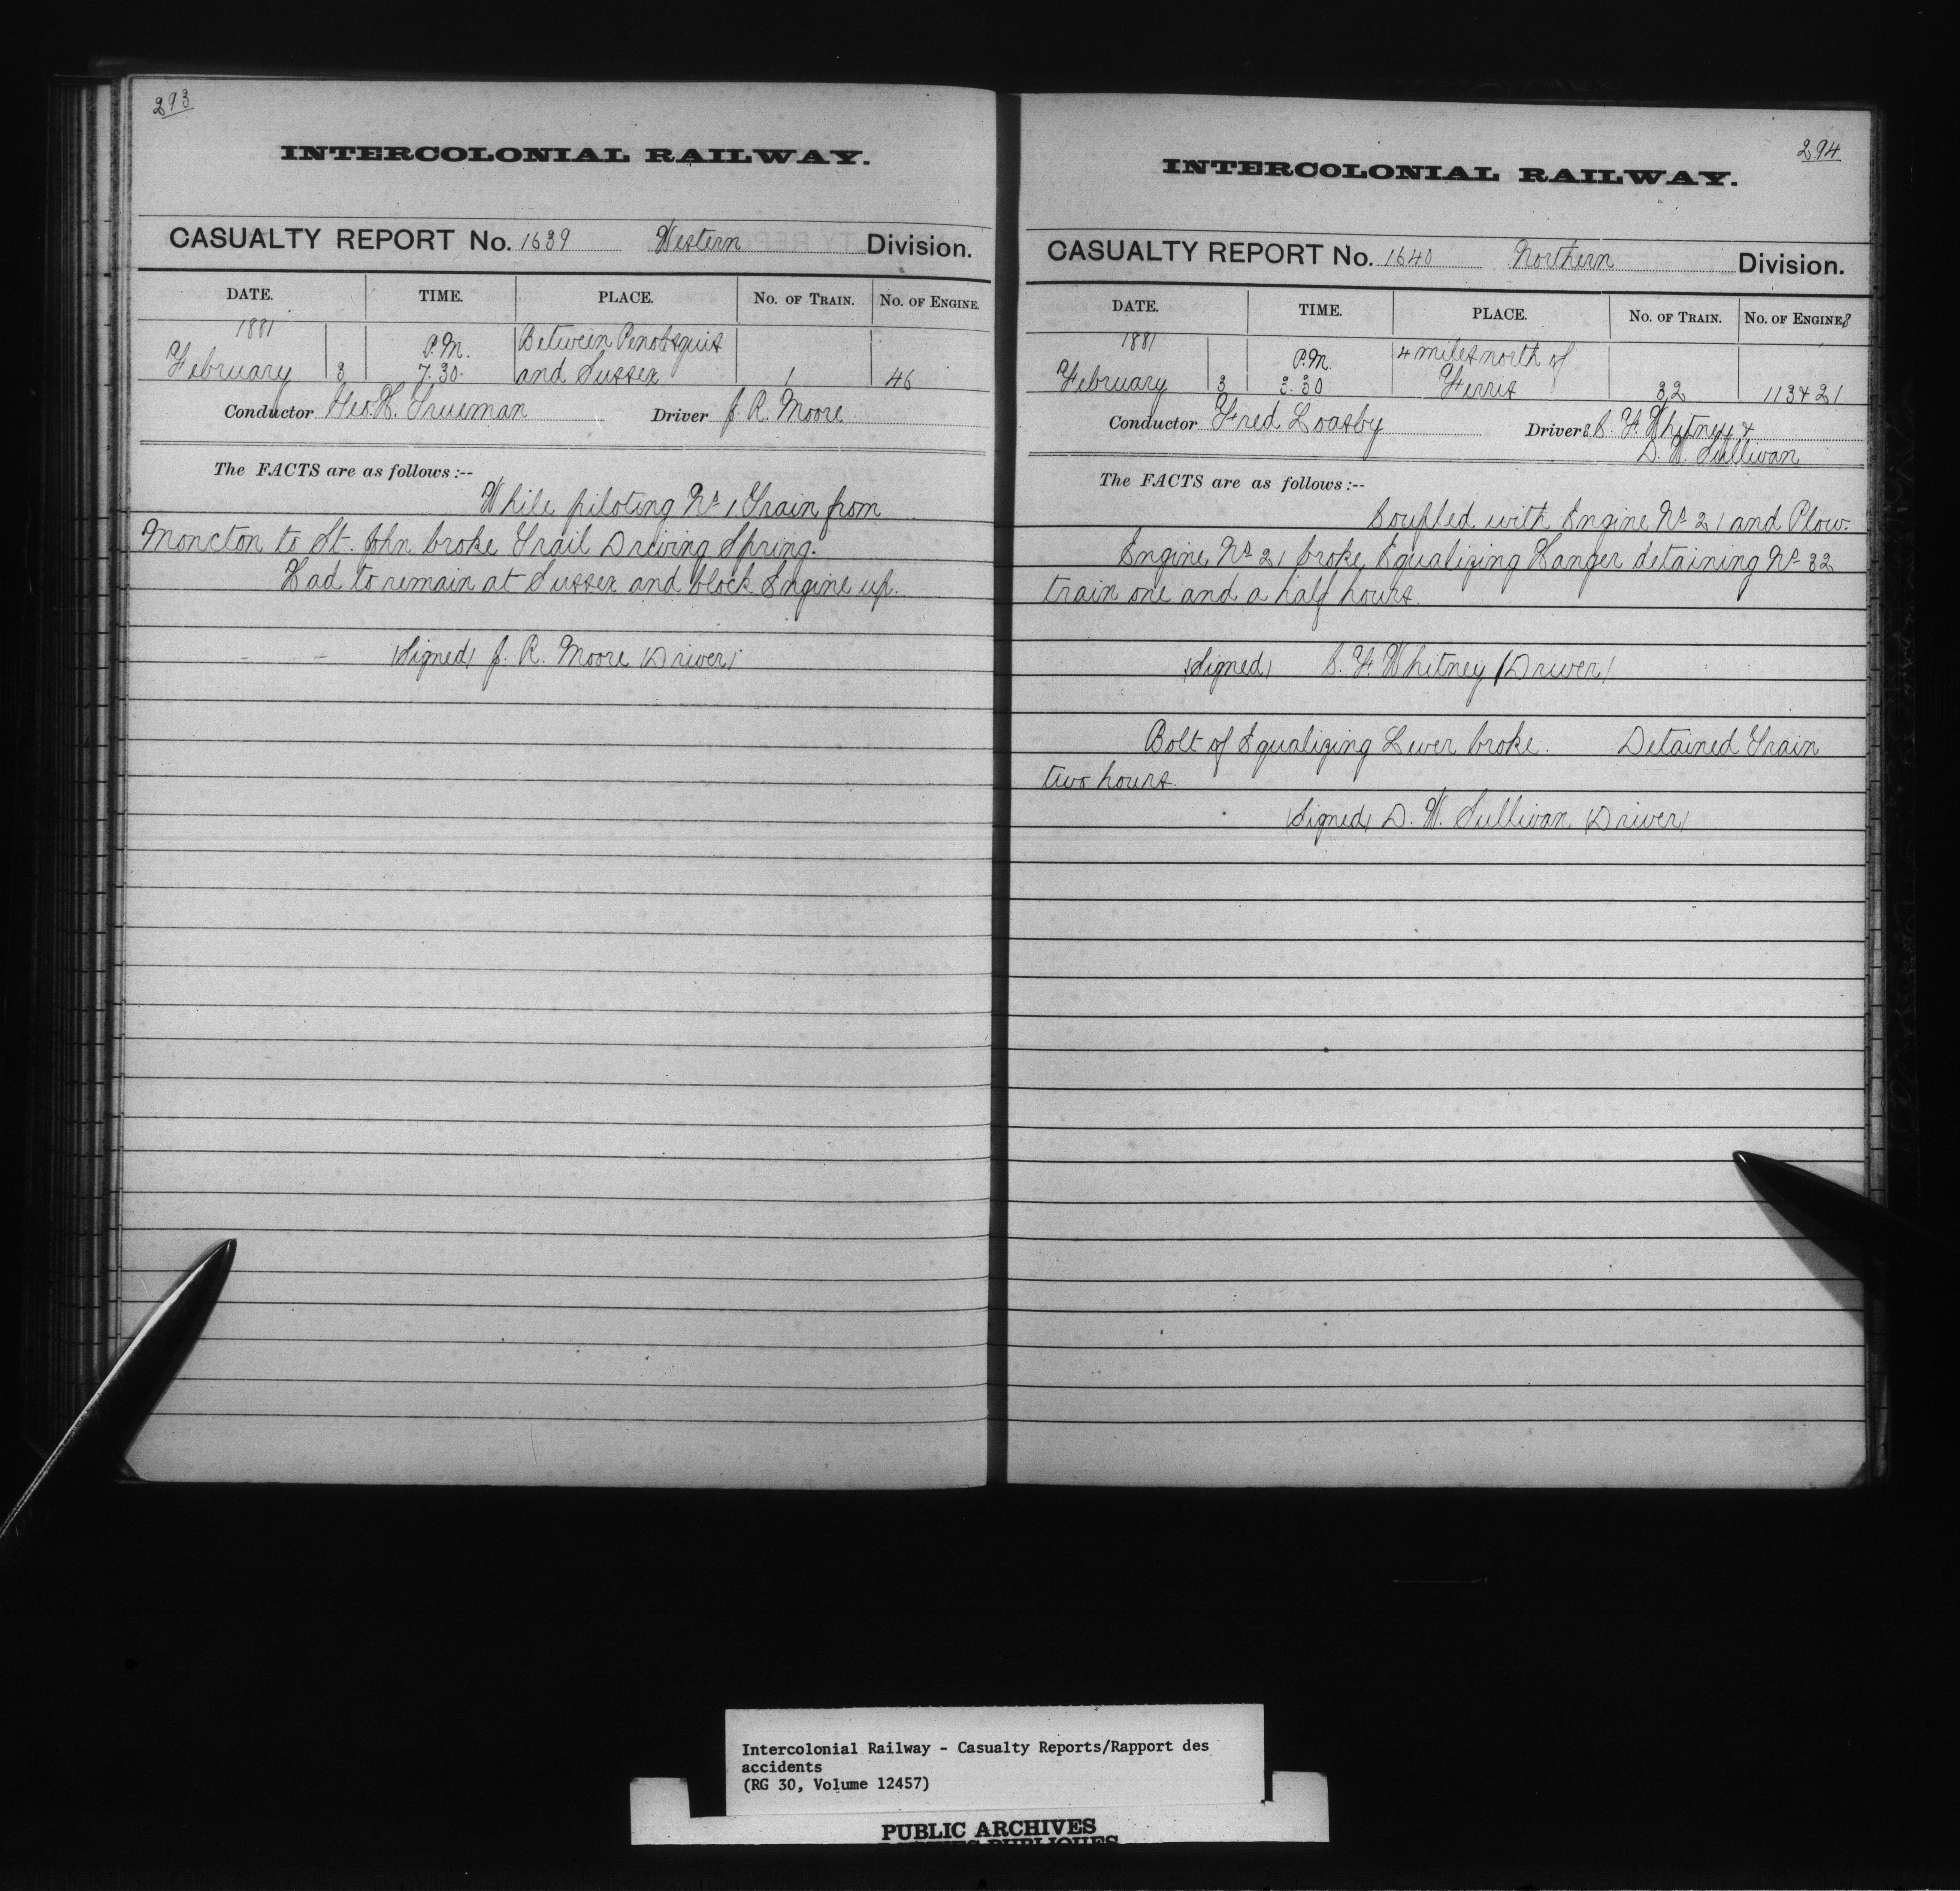 293
INTERCOLONIAL RAILWAY.
CASUALTY REPORT No. 1639 Western Division.
DATE. TIME. PLACE. No. of Train. No. of Engine.
1881 P.M. Between Penobsquis
February 3 7.30. and Sussex 1 46
Conductor Geo. H. Trueman Driver J. R. Moore
The FACTS are as follows :--
While piloting No 1 Train from
Moncton to St. John broke Trail Driving Spring.
Had to remain at Sussex and block Engine up.
(Signed) J. R. Moore (Driver)
294
INTERCOLONIAL RAILWAY.
CASUALTY REPORT No. 1640 Northern Division.
DATE. TIME. PLACE. No. of Train. No. of Engines
1881 P.M. 4 miles north of
February 3 3.30 Ferris 32 113 & 21
Conductor Fred Loasby Drivers C. F. Whitney &
D. W. Sullivan
The FACTS are as follows :--
Coupled with Engine No 21 and Plow.
Engine No 21 broke Equalizing Hanger detaining No 32
train one and a half hours.
(Signed) C. F. Whitney (Driver)
Bolt of Equalizing Lever broke. Detained Train
two hours.
(Signed) D. W. Sullivan (Driver)
Intercolonial Railway - Casualty Reports/Rapport des
accidents
(RG 30, Volume 12457)
PUBLIC ARCHIVES